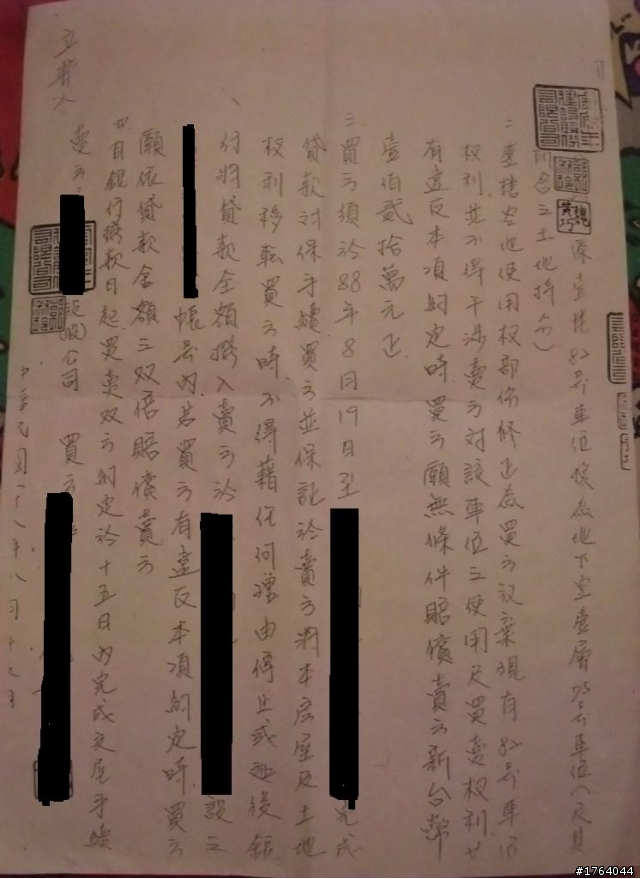 原壹樓82號車位換為地下室壹層 號車位(及其
所含之土地持分)
二、壹樓空地使用權部份修正為買方放棄現有82號車位
權利並不得干涉賣方對該車位之使用及買賣權利 
有違反本項約定時買方願無條件賠償賣方新台幣
壹佰貳拾萬元正
三、買方須於88年8月19日至 完成
貸款對保手續買方並保証於賣方將本房屋及土地
權利移転買方時不得藉任何理由停止或延後銀
行將貸款全額撥入賣方於 設之
帳號內若買方有違反本項約定時買方
願依貸款金額之双倍賠償賣方
四、自銀行撥款日起買賣双方約定於十五日內完成交屋手續
立書人
賣方: 股份公司 買方:
中華民國八十八年八月十七日
#1764044